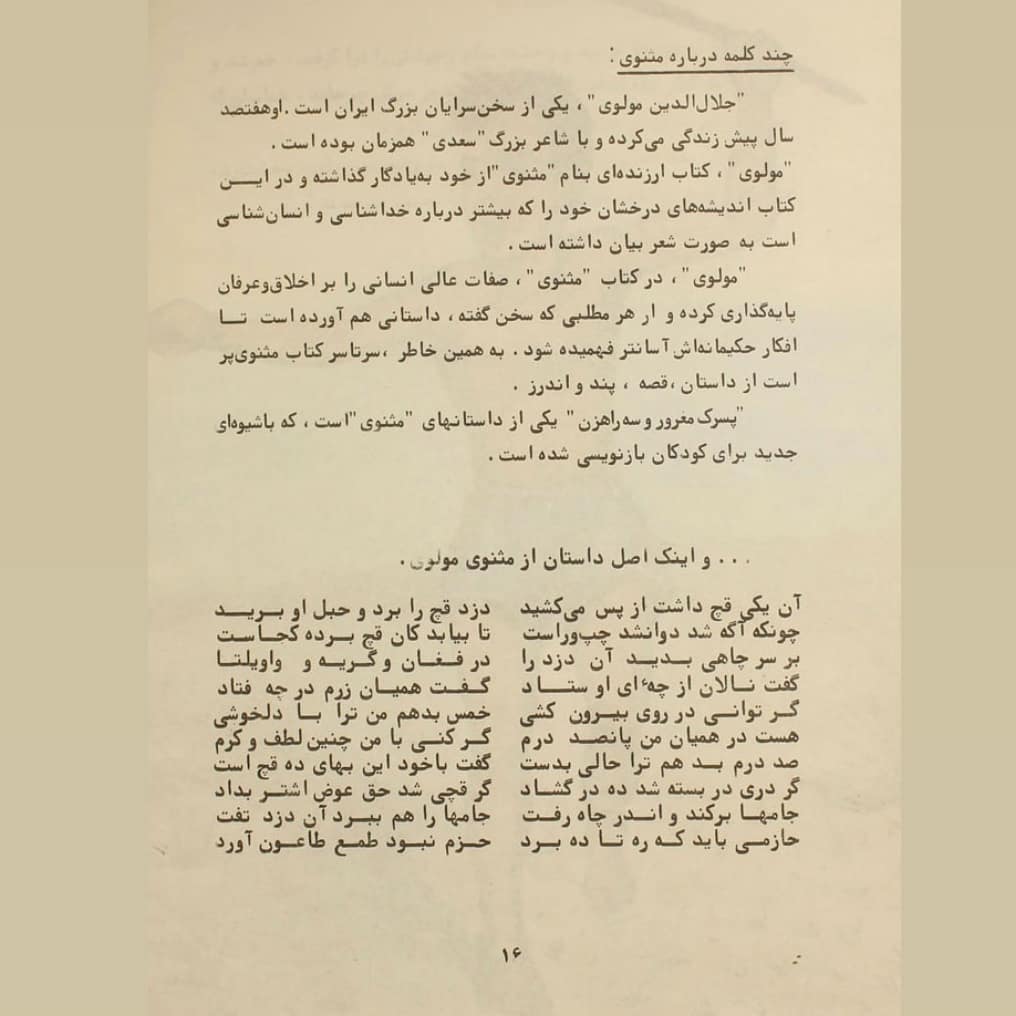 چند کلمه درباره مثنوی :
"جلال‌الدین مولوی" ، یکی از سخن‌سرایان بزرگ ایران است .اوهفتصد
سال پیش زندگی می‌کرده و با شاعر بزرگ "سعدی" همزمان بوده است .
"مولوی" ، کتاب ارزنده‌ای بنام "مثنوی "از خود به‌یادگار گذاشته و در ایــن
کتاب اندیشه‌های درخشان خود را که بیشتر درباره خداشناسی و انسان‌شناسی
است به صورت شعر بیان داشته است .
"مولوی" ، در کتاب "مثنوی" ، صفات عالی انسانی را بر اخلاق‌وعرفان
پایه‌گذاری کرده و ار هر مطلبی که سخن گفته ، داستانی هم آورده است تــا
افکار حکیمانه‌اش آسانتر فهمیده شود . به همین خاطر ،سرتاسر کتاب مثنوی‌پر
است از داستان ،قصه ، پند و اندرز .
"پسرک مغرور و سه راهزن" یکی از داستانهای "مثنوی "است ، که باشیوه‌ای
جدید برای کودکان بازنویسی شده است .
... و اینک اصل داستان از مثنوی مولوی .
آن یکی قچ داشت از پس می‌کشید دزد قچ را برد و حبل او بریــد
چونکه آگه شد دوانشد چپ‌وراست تا بیابد کان قچ بـرده کجاست
بر سر چاهی بـدیـد آن دزد را در فـغان و گـریه و واویلتـا
گفت نـالان از چهٔ ای او ستــاد گـفـت همیان زرم در چه فتاد
گـر توانـی در روی بیـرون کشی خمس بدهم من ترا بـا دلخوشی
هست در همیان من پانصـد درم گـر کنـی با من چنین لطف و کرم
صد درم بـد هم ترا حالی بدست گفت باخود این بهای ده قچ است
گر دری در بسته شد ده در گشاد گر قچی شد حق عوض اشتـر بداد
جامهـا برکند و انـدر چاه رفـت جامها را هم ببـرد آن دزد تفت
حازمـی باید کـه ره تـا ده بـرد حـزم نبـود طمع طاعـون آورد
۱۶